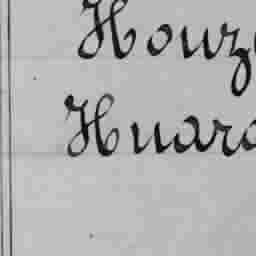 Houz
Huard